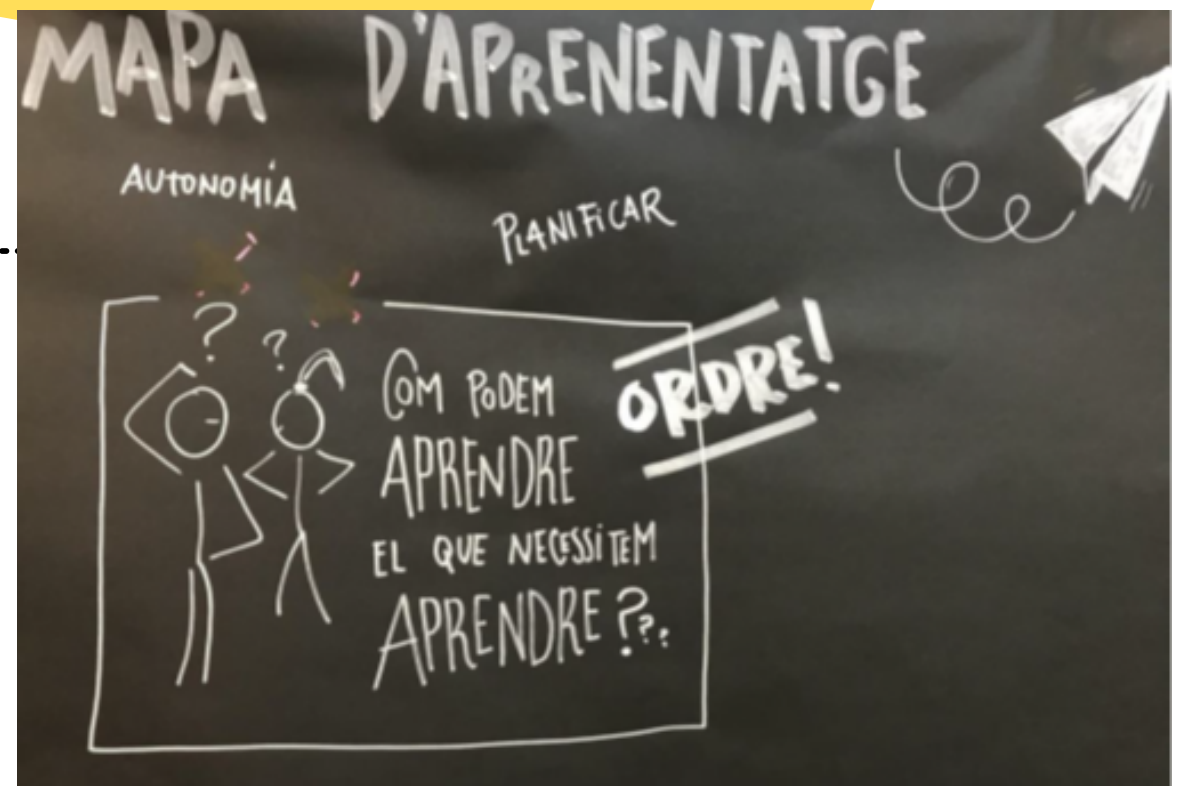 MAPA D'APRENENTATGE
AUTONOMÍA
PLANIFICAR
?
?
ORDRE!
COM PODEM
APRENDRE
EL QUE NECESSITEM
APRENDRE???